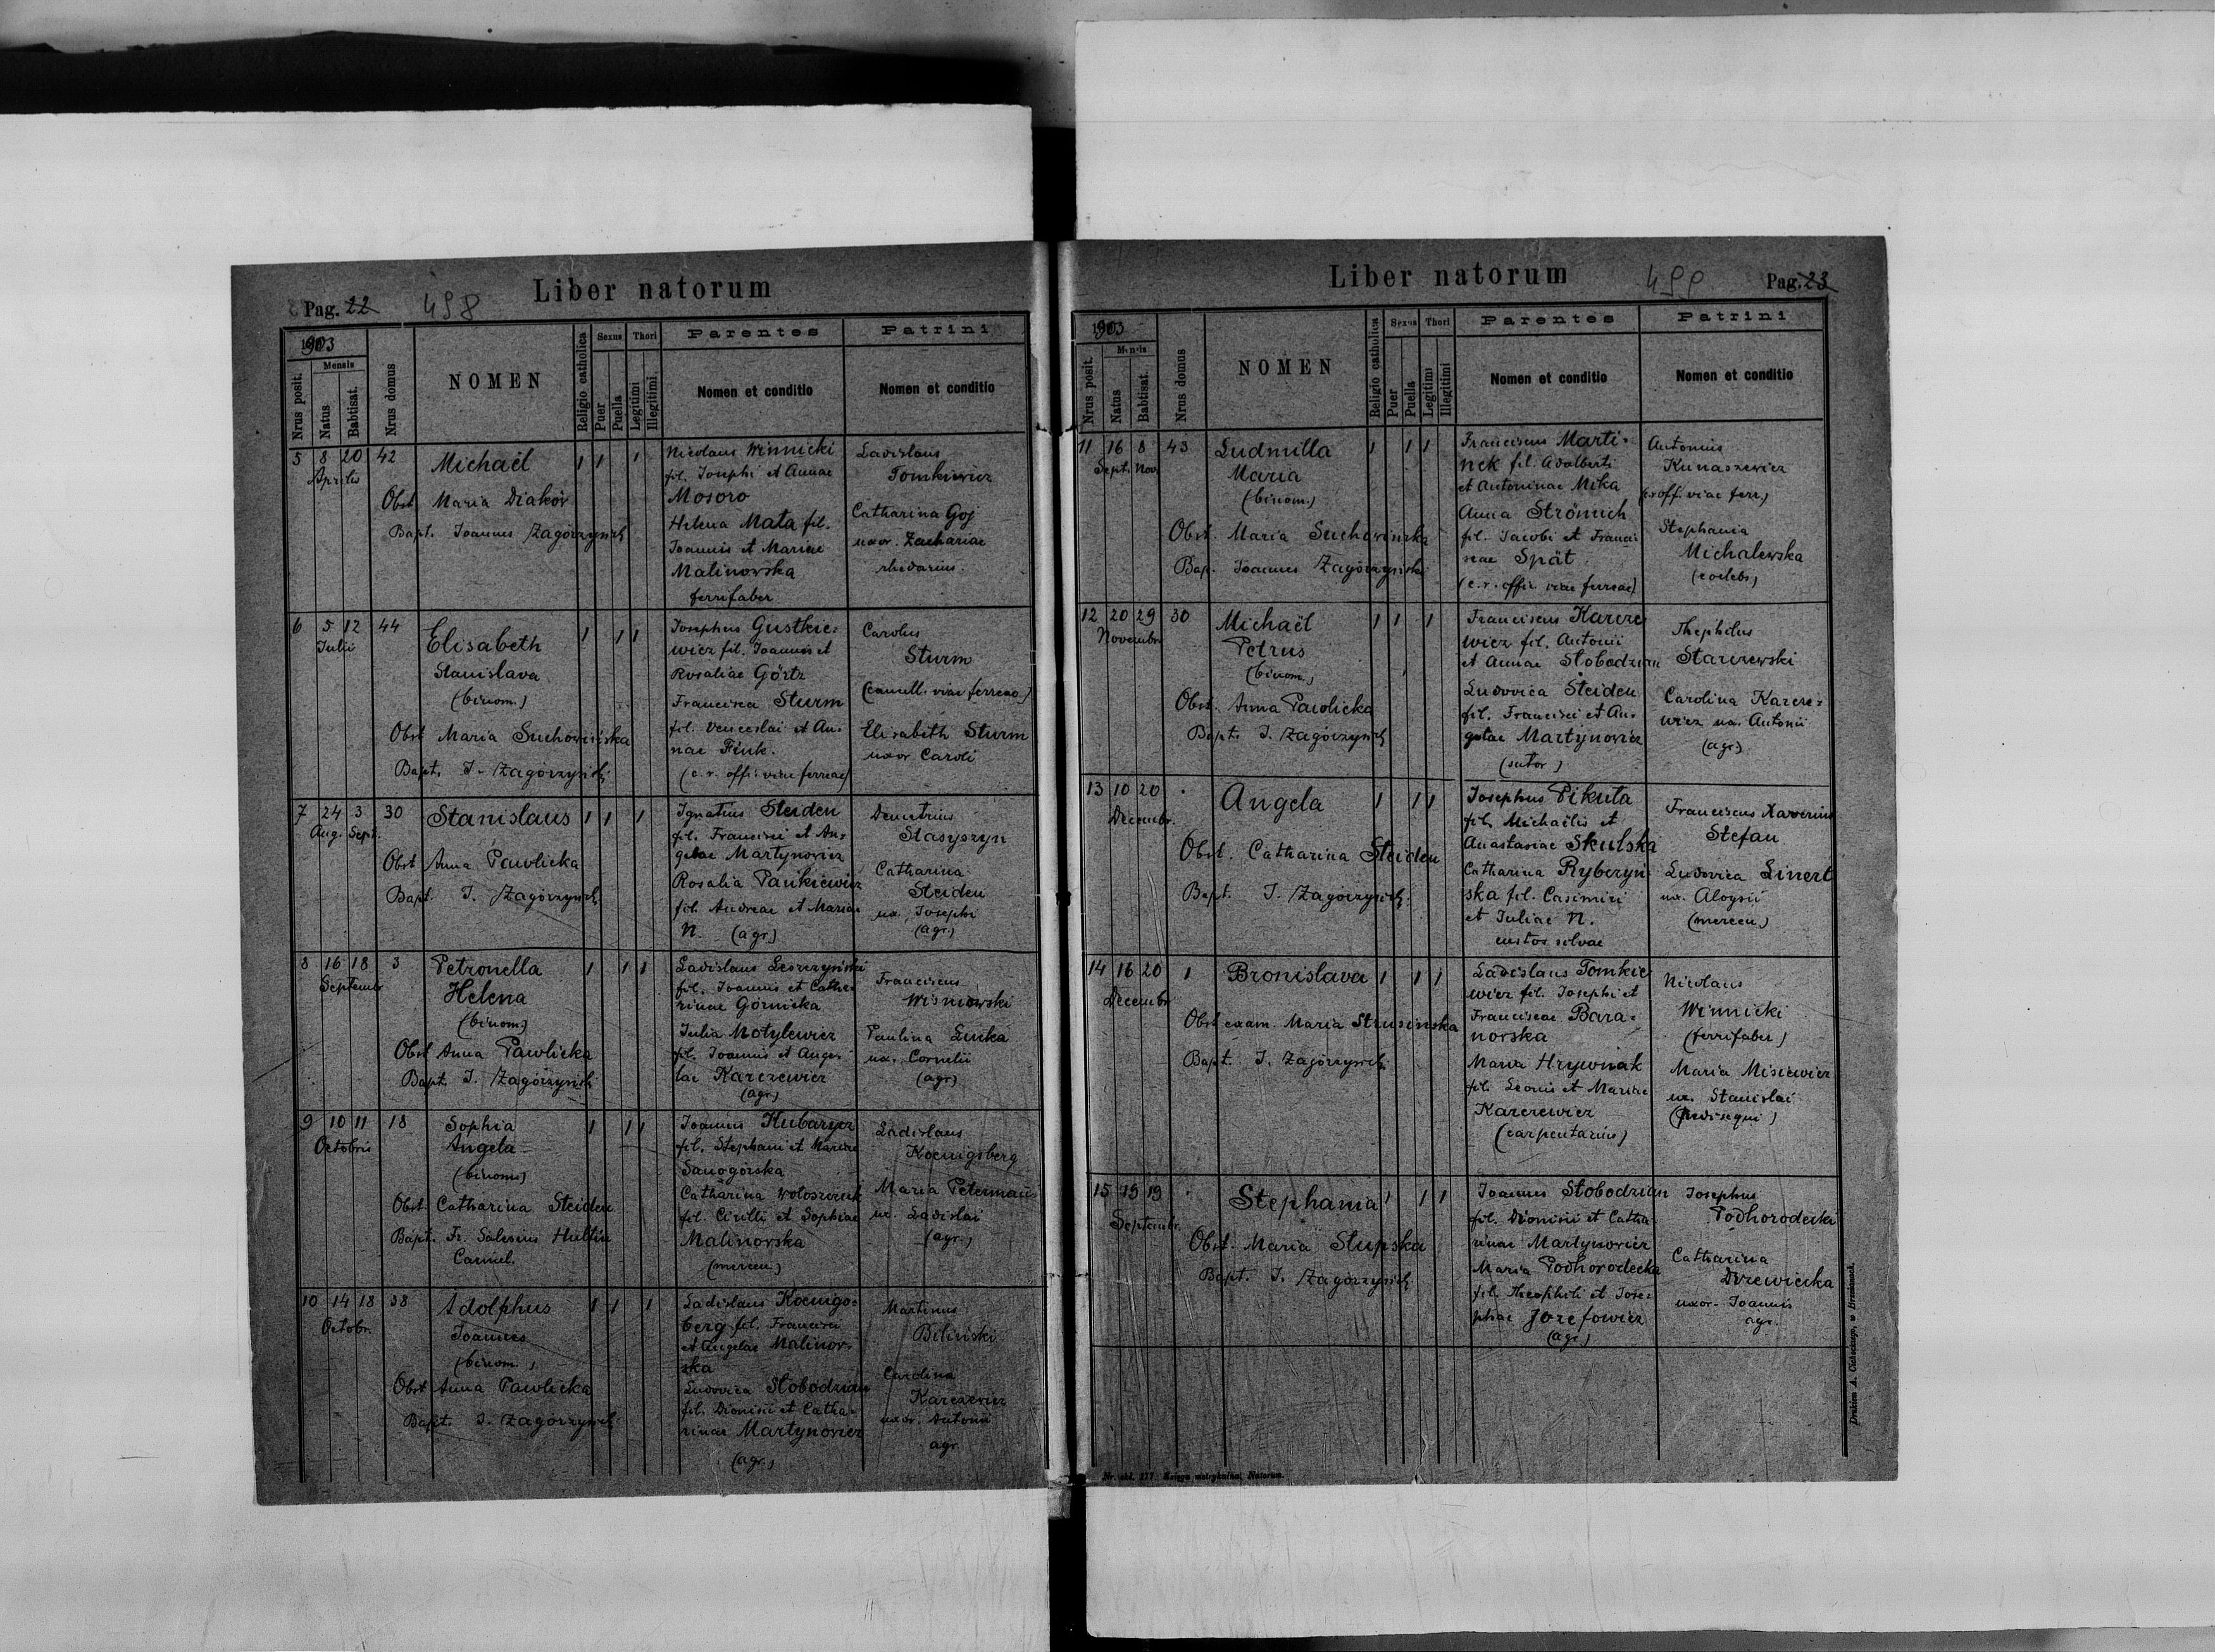 Pag. 22
498
Liber natorum
1903
Nrus posit.
Mensis
Natus
Babtisat.
Nrus domus
NOMEN
Religio catholica
Sexus
Puer
Puella
Thori
Legitimi
Illegitimi
Parentes
Nomen et conditio
Patrini
Nomen et conditio
5 8 20 42
Aprilis
Michaël
1 1 1
Obst. Maria Diaków
Bapt. Joannes Zagórzyński
Nicolaus Winnicki
fil. Josephi et Annae
Mosoro
Helena Mata fil.
Joannis et Mariae
Malinowska
ferrifaber
Ladislaus
Tomkiewicz
Catharina Goj
uxor. Zachariae
rhedarius.
6 5 12 44
Julii
Elisabeth
Stanislava
(binom.)
1 1 1
Obst Maria Suchowińska
Bapt. J. Zagórzyński
Josephus Gustkie-
wicz fil. Joannis et
Rosaliae Görtz
Francisca Sturm
fil. Venceslai et An-
nae Fink.
(c. r. offic. viae ferreae)
Carolus
Sturm
viae ferreae)
Elisabeth Sturm
uxor Caroli
7 24 3 30
Aug. Sept.
Stanislaus
1 1 1
Obst Anna Pawlicka
Bapt. J. Zagórzyński
Ignatius Steiden
fil. Francisci et An-
gelae Martynowicz
Rosalia Pańkiewicz
fil. Andreae et Mariae
N. (agr.)
Demetrius
Stasyszyn
Catharina
Steiden
ux. Josephi
(agr.)
8 16 18 3
Septembr.
Petronella
Helena
(binom.)
1 1 1
Obst Anna Pawlicka
Bapt. J. Zagórzyński
Ladislaus Leszczyński
fil. Joannis et Catha-
rinae Górnicka
Julia Motylewicz
fil. Joannis et Ange-
lae Karczewicz
(agr.)
Franciscus
Wisniowski
Paulina Luika
ux. Cornelii
(agr.)
9 10 11 18
Octobris
Sophia
Angela
(binom.)
1 1 1
Obst. Catharina Steiden
Bapt. Fr. Salesius Hultin
Carmel.
Joannes Kubarycz
fil. Stephani et Mariae
Sanogórska
Catharina Wołoszczuk
fil. Cirilli et Sophiae
Malinowska
(mercen.)
Ladislaus
Koenigsberg
Maria Petermann
ux. Ladislai
(agr.)
10 14 18 38
Octobr.
Adolphus
Joannes
(binom.)
1 1 1
Obst Anna Pawlicka
Bapt. J. Zagórzyński
Ladislaus Koenigs-
berg fil. Francisci
et Angelae Malinow-
ska
Ludovica Słobodzian
fil. Dionisii et Catha-
rinae Martynowicz
(agr.)
Martinus
Biliński
Carolina
Karczewicz
uxor. Antonii
agr.
Liber natorum
499
Pag. 23
1903
Nrus posit.
Mensis
Natus
Babtisat.
Nrus domus
NOMEN
Religio catholica
Sexus
Puer
Puella
Thori
Legitimi
Illegitimi
Parentes
Nomen et conditio
Patrini
Nomen et conditio
11 16 8 43
Sept. Nov.
Ludmilla
Maria
(binom.)
1 1 1
Obst. Maria Suchowińska
Bap. Joannes Zagórzyński
Franciscus Marti-
nek fil. Adalberti
et Antoninae Mika
Anna Strömich
fil. Jacobi et Francis-
cae Spät
(c. r. offic. viae ferreae)
Antonius
Kunaszewicz
(c. r. off. viae ferr.)
Stephania
Michalewska
(coelebs)
12 20 29 30
Novembr.
Michaël
Petrus
(binom.)
1 1 1
Obst. Anna Pawlicka
Bapt. J. Zagórzyński
Franciscus Karcze-
wicz fil. Antonii
et Annae Słobodzian
Ludovica Steiden
fil. Francisci et An-
gelae Martynowicz
(sutor)
Thephilus
Starzewski
Carolina Karcze-
wicz ux. Antonii
(agr.)
13 10 20
Decembr.
Angela
1 1 1
Obst. Catharina Steiden
Bapt. J. Zagórzyński
Josephus Pikuta
fil. Michaëlis et
Anastasiae Skulska
Catharina Ryberyn-
ska fil. Casimiri
et Juliae N.
custos silvae
Franciscus Xaverius
Stefan
Ludovica Linert
ux. Aloysii
(mercen.)
14 16 20 1
Decembr.
Bronislava
1 1 1
Obst exam. Maria Strusińska
Bapt. J. Zagórzyński
Ladislaus Tomkie-
wicz fil. Josephi et
Franciscae Bara-
nowska
Maria Hrywniak
fil. Leonis et Mariae
Karczewicz
(carpentarius)
Nicolaus
Winnicki
(ferrifaber)
Maria Misiewicz
ux. Stanislai
(pedisequi)
15 15 19
Septembr.
Stephania
1 1 1
Obst. Maria Słupska
Bapt. J. Zagórzyński
Joannes Słobodzian
fil. Dionisii et Catha-
rinae Martynowicz
Maria Podhorodecka
fil. Theophili et Jose-
phae Jozefowicz
(agr.)
Josephus
Podhorodecki
Catharina
Drzewiecka
uxor. Joannis
agr.
Nr. skl. 277. Księga metrykalna. Natorum.
Drukiem A. w Brzeżanach.